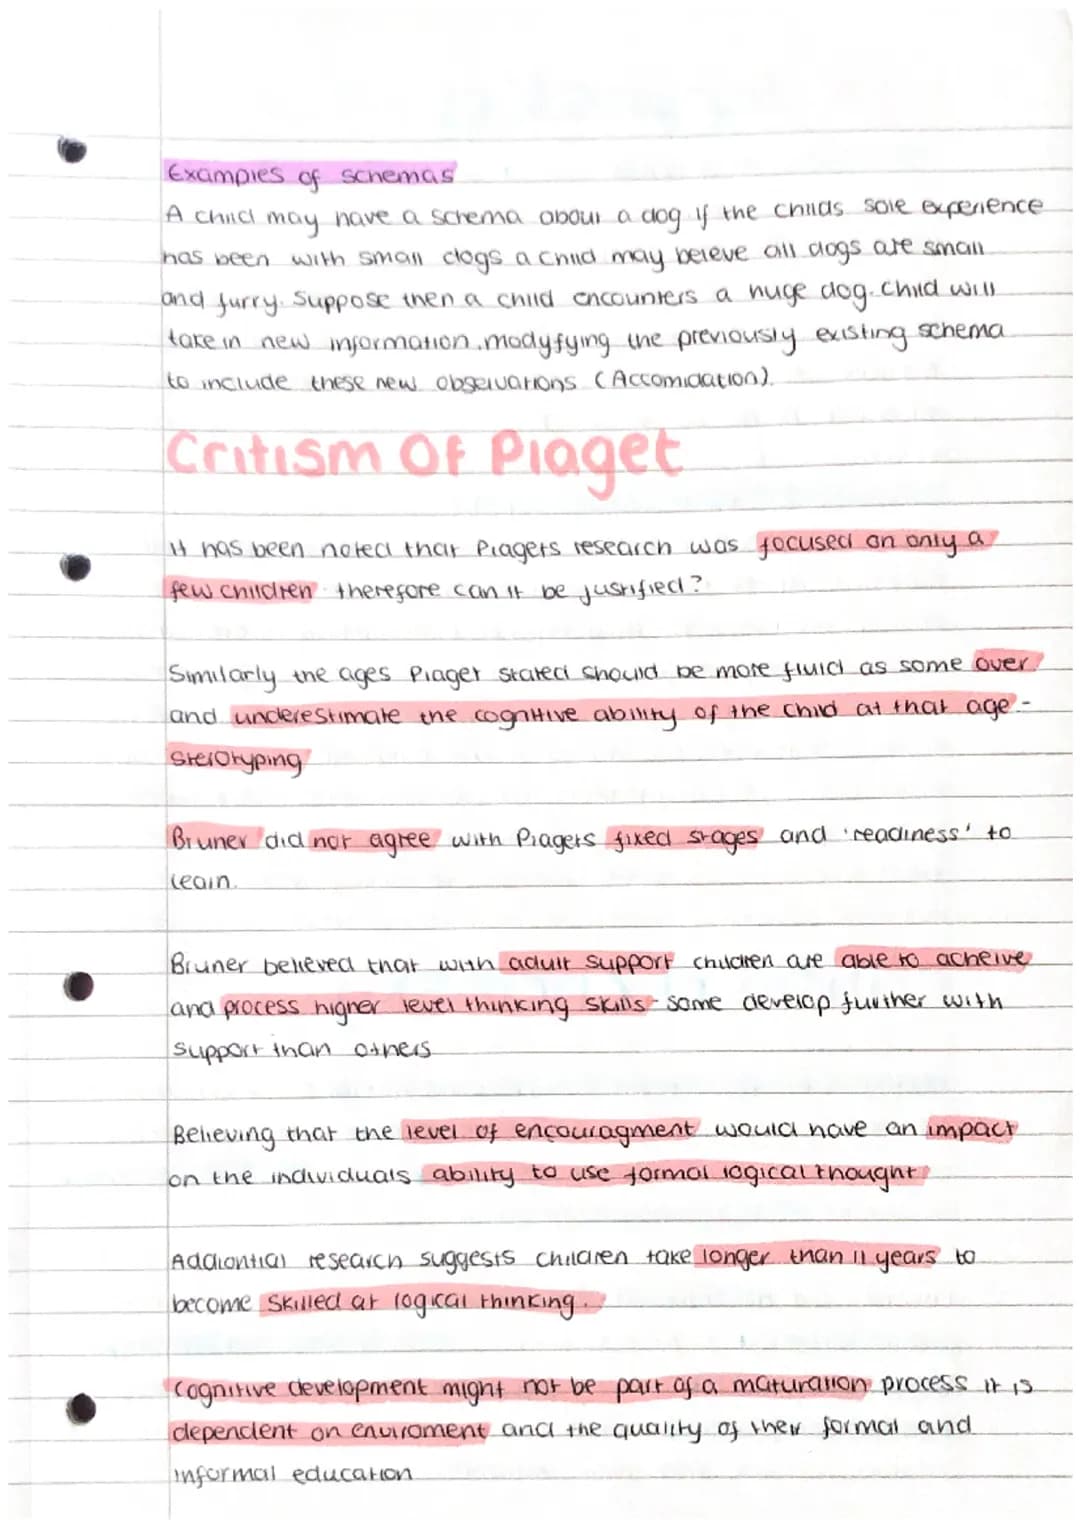 Examples of schemas
A child may have a schema about a dog if the childs sole experience
has been with small dogs a child may beleve all dogs are small
and furry. Suppose then a child encounters a huge dog. Child will
take in new information, modyfying the previously existing schema
to include these new observations (Accomidation).
Critism Of Piaget
It has been noted that Piagets research was focused on only a
few children therefore can it be justified?
Similarly the ages Piaget stated should be more fluid as some over
and underestimate the cognitive ability of the child at that age -
sterotyping
Bruner did not agree with Piagets fixed stages and 'readiness' to
learn.
Bruner believed that with adult support children are able to acheive
and process higher level thinking skills - some develop further with
support than others
Believing that the level of encouragment would have an impact
on the individuals ability to use formal logical thought
Addiontial research suggests children take longer than 11 years to
become skilled at logical thinking.
Cognitive development might not be part of a maturation process it is
dependent on enviroment and the quality of their formal and
informal education